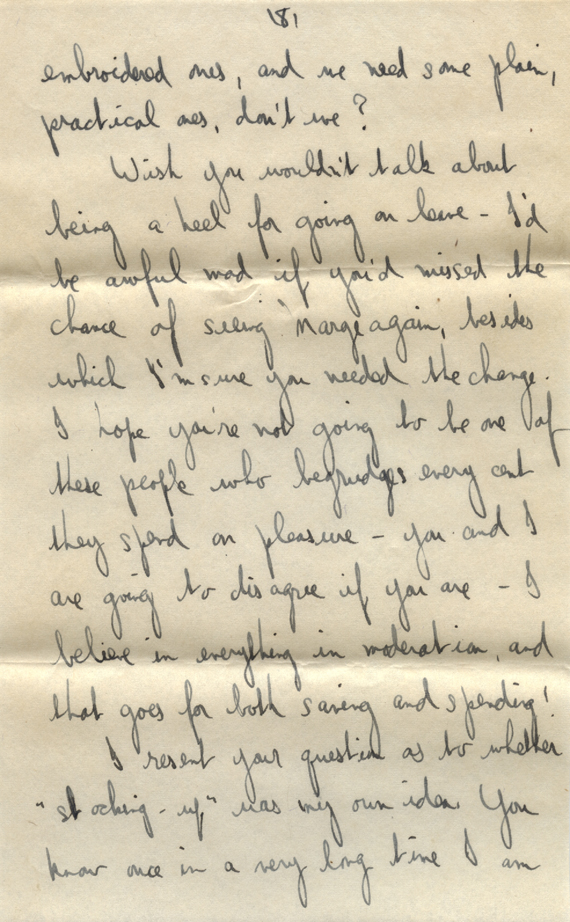 181
embroidered ones, and we need some plain,
practical ones, don't we?
Wish you wouldn't talk about
being a heel for going on leave - I'd
be awful mad if you'd missed the
chance of seeing Marge again, besides
which I'm sure you needed the change.
I hope you're not going to be one of
these people who begrudges every cent
they spend on pleasure - you and I
are going to disagree if you are - I
believe in everything in moderation, and
that goes for both saving and spending!
I resent your question as to whether
"stocking-up" was my own idea. You
know once in a very long time I am